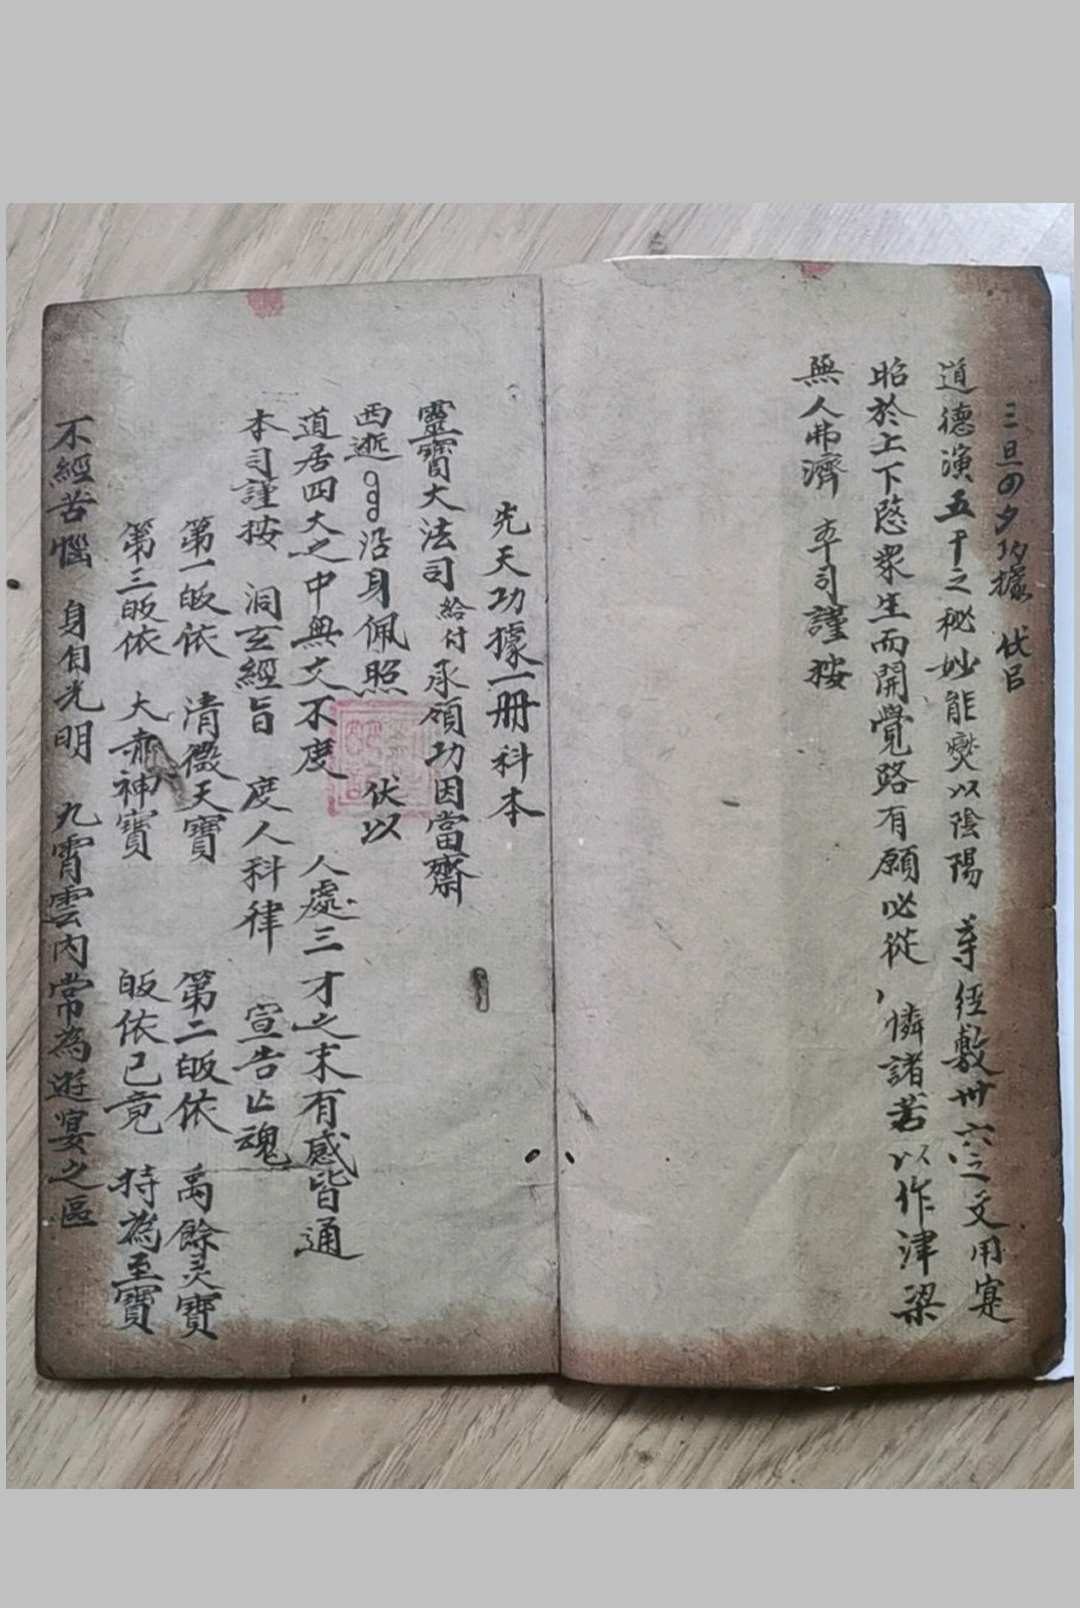 三旦四夕功據 伏㠯
道德演五十之秘妙能爕以陰陽 等経敷卅六之文用寔
昭於上下愍衆生而開覺路有願必從憐諸苦以作津梁
無人弗濟 本司謹按
先天功據一册科本
靈寶大法司給付承領功因當齋
西逝 沿身佩照 伏以
道居四大之中無文不度 人處三才之末有感皆通
本司謹按 洞玄經旨 度人科律 宣告亾魂
第一皈依 清微天寶 第二皈依 禹餘灵寶
第三皈依 大赤神寶 皈依已竟 持為至寶
不經苦惱 身自光明 九霄雲内常為遊宴之區